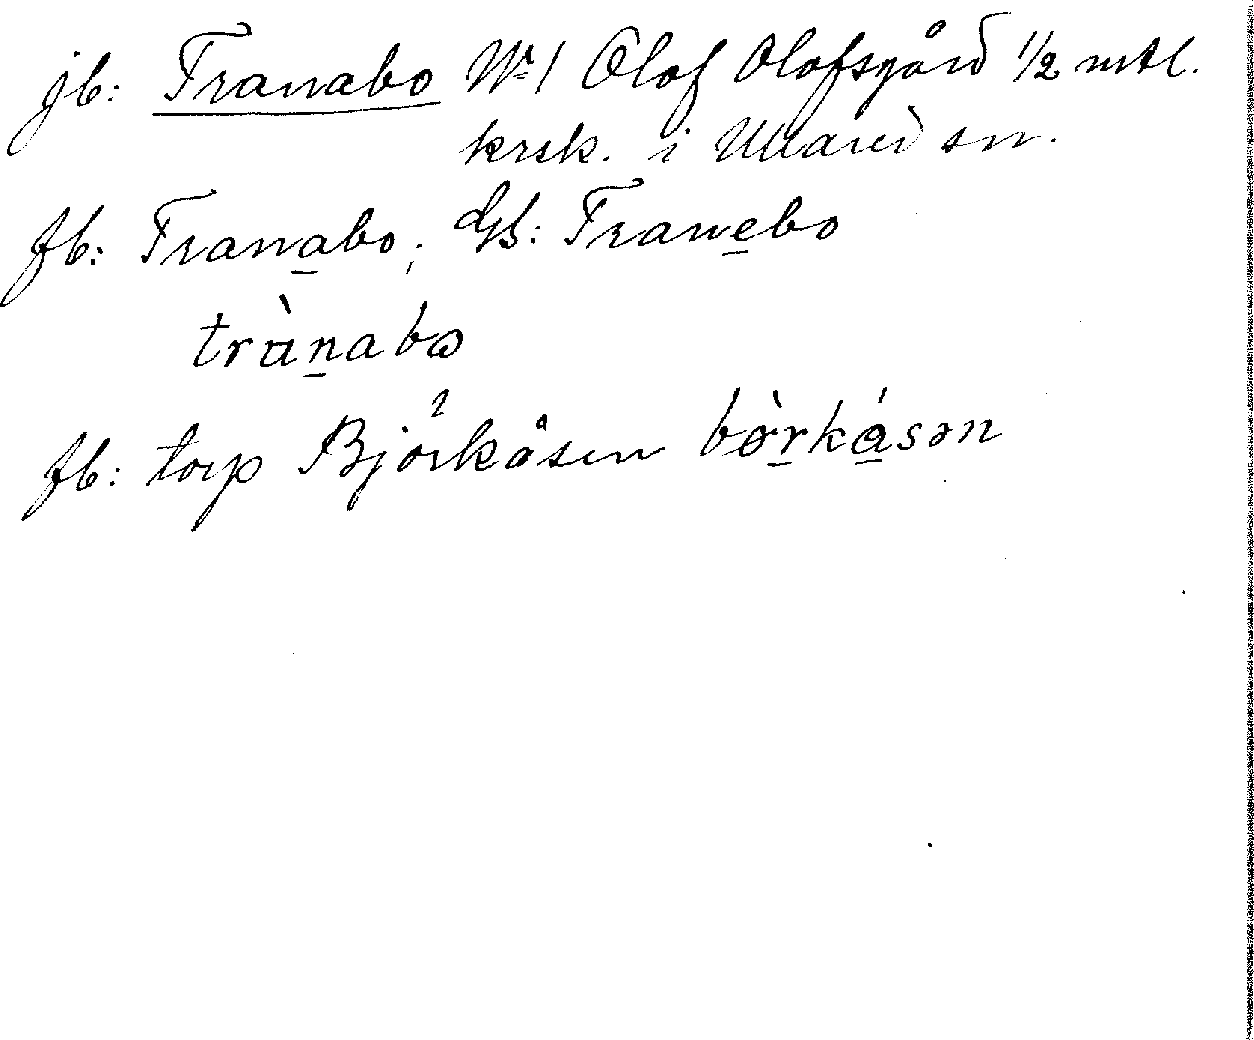 jb: Tranabo No 1 Olof Olofsgård 1/2 mtl.
krsk. i Ullared sn.
fb: Tranabo; GS: Tranebo
trànabo
fb: torp Björkåsen bə̀rkásən